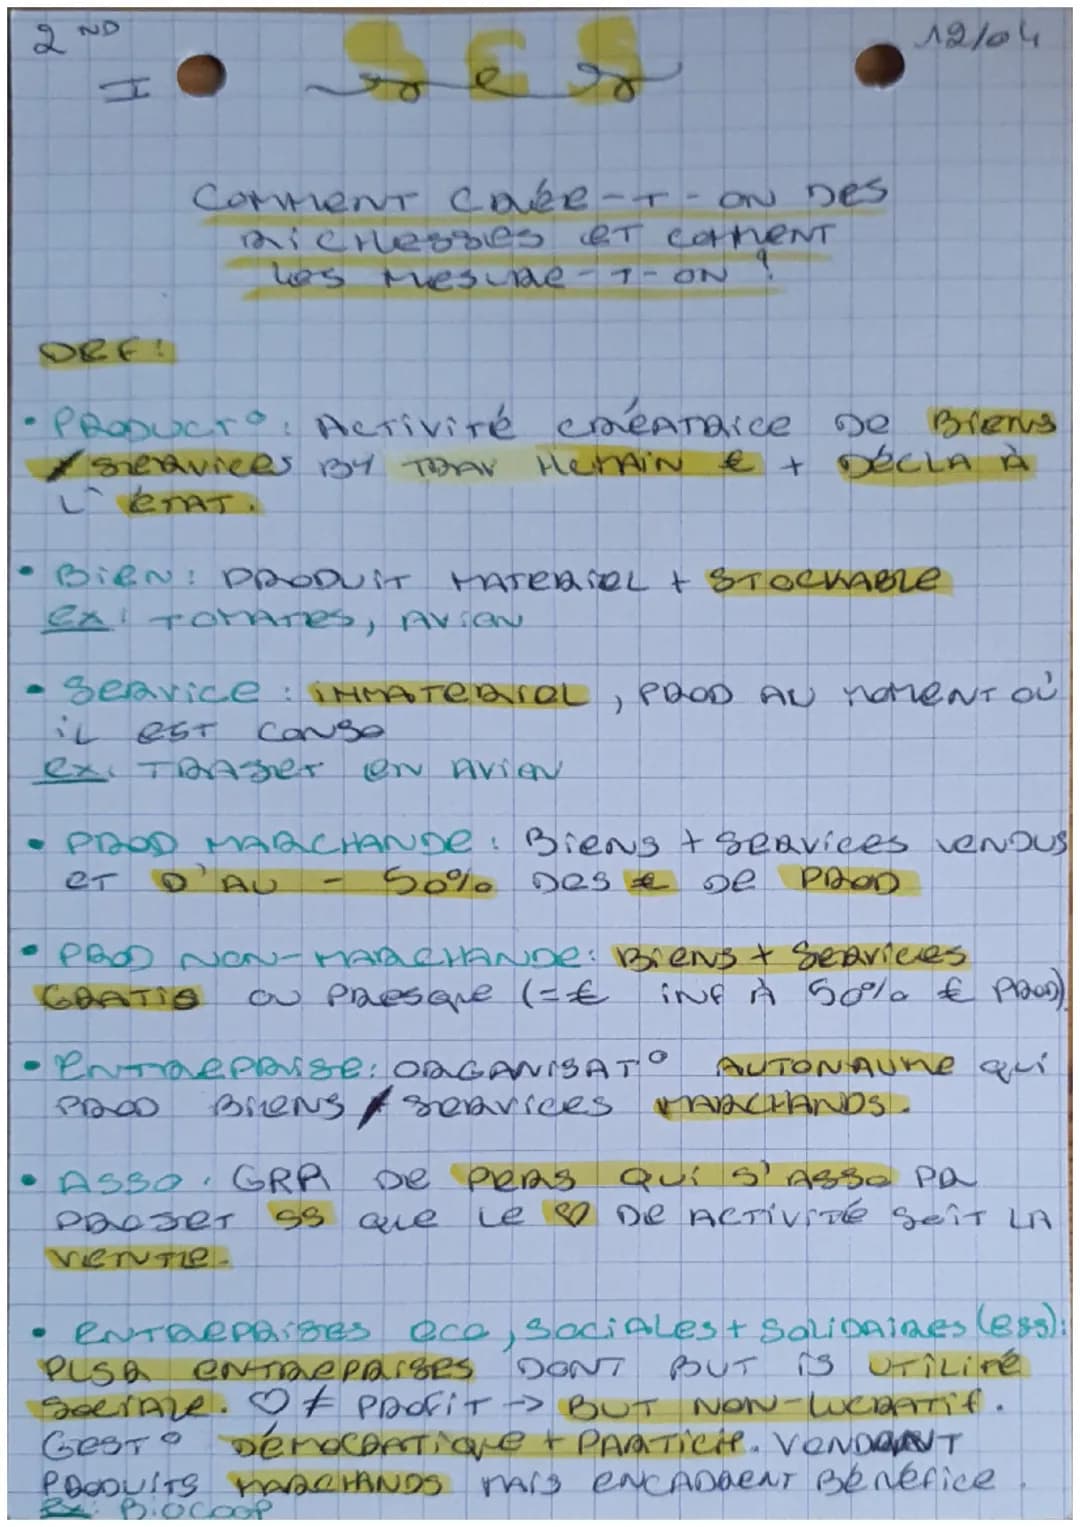 2 ND
I
SES
12/04
COMMENT CRÉE-T-ON DES
RICHESSES ET COMMENT
LES MESURE-T-ON ?
DEF:
• PRODUCT°: ACTIVITÉ CRÉATRICE DE BIENS
/ SERVICES BY TRAV HUMAIN € + DÉCLA À
L'ÉTAT.
• BIEN: PRODUIT MATERIEL + STOCKABLE
EX: TOMATES, AVION
• SERVICE: IMMATERIEL, PROD AU MOMENT OÙ
IL EST CONSO
EX: TRAJET EN AVION
• PROD MARCHANDE: BIENS + SERVICES VENDUS
ET D'AU - 50% DES € DE PROD
• PROD NON-MARCHANDE: BIENS + SERVICES
GRATIS OU PRESQUE (= € INF À 50% € PROD)
• ENTREPRISE: ORGANISAT° AUTONAUME QUI
PROD BIENS / SERVICES MARCHANDS.
• ASSO: GRP DE PERS QUI S'ASSO PR
PROJET SS QUE LE ♡ DE ACTIVITÉ SOIT LA
VENTE.
• ENTREPRISES ECO, SOCIALES + SOLIDAIRES (ESS):
PLSR ENTREPRISES DONT BUT IS UTILITÉ
SOCIALE. ♡ ≠ PROFIT → BUT NON-LUCRATIF.
GEST° DÉMOCRATIQUE + PARTICIP. VENDENT
PRODUITS MARCHANDS MAIS ENCADRENT BÉNÉFICE.
EX: BIOCOOP